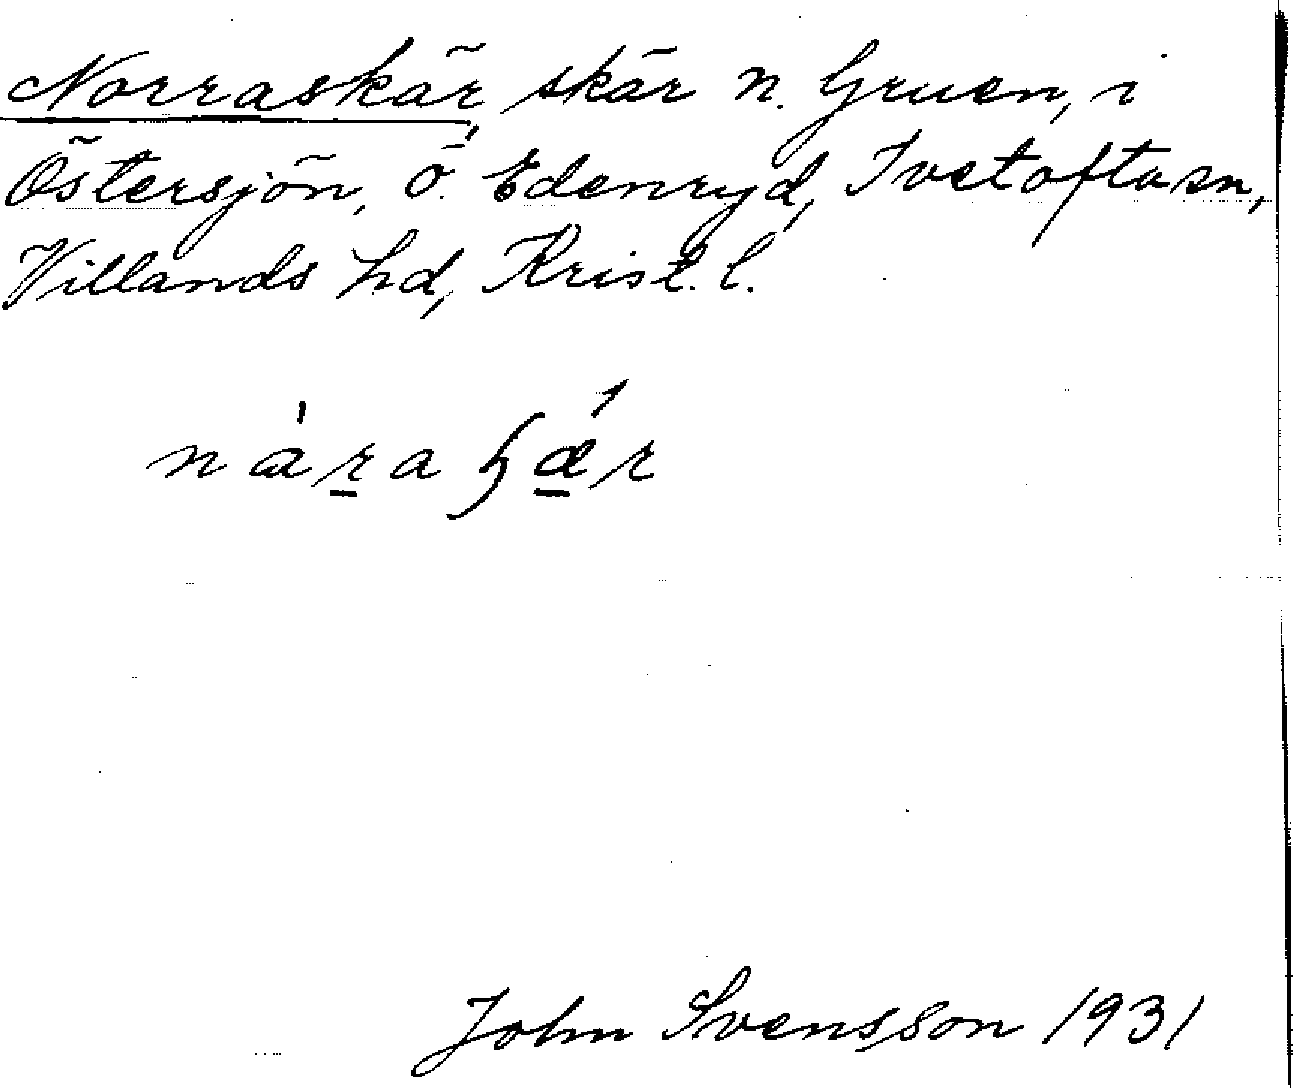 Norraskär, skär n. Gruen, i
Östersjön, ö. Edenryd, Ivetofta sn,
Villands hd, Krist. l.
John Svensson 1931